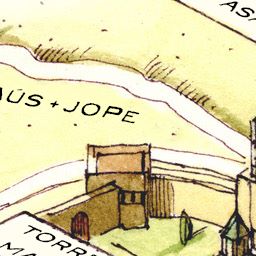 AS
AÜS + JOPE
TORR
MA